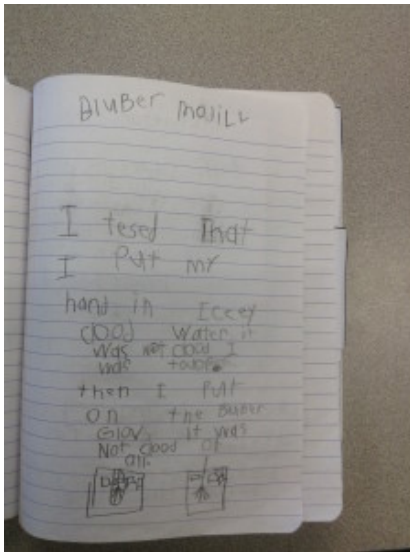 BluBer moDiLL
I tesed That
I Putt my
hand in Iccey
clod Water it
was not clod I
was
then I Putt
on the BluBer
Glov. it was
Not clod at
all.